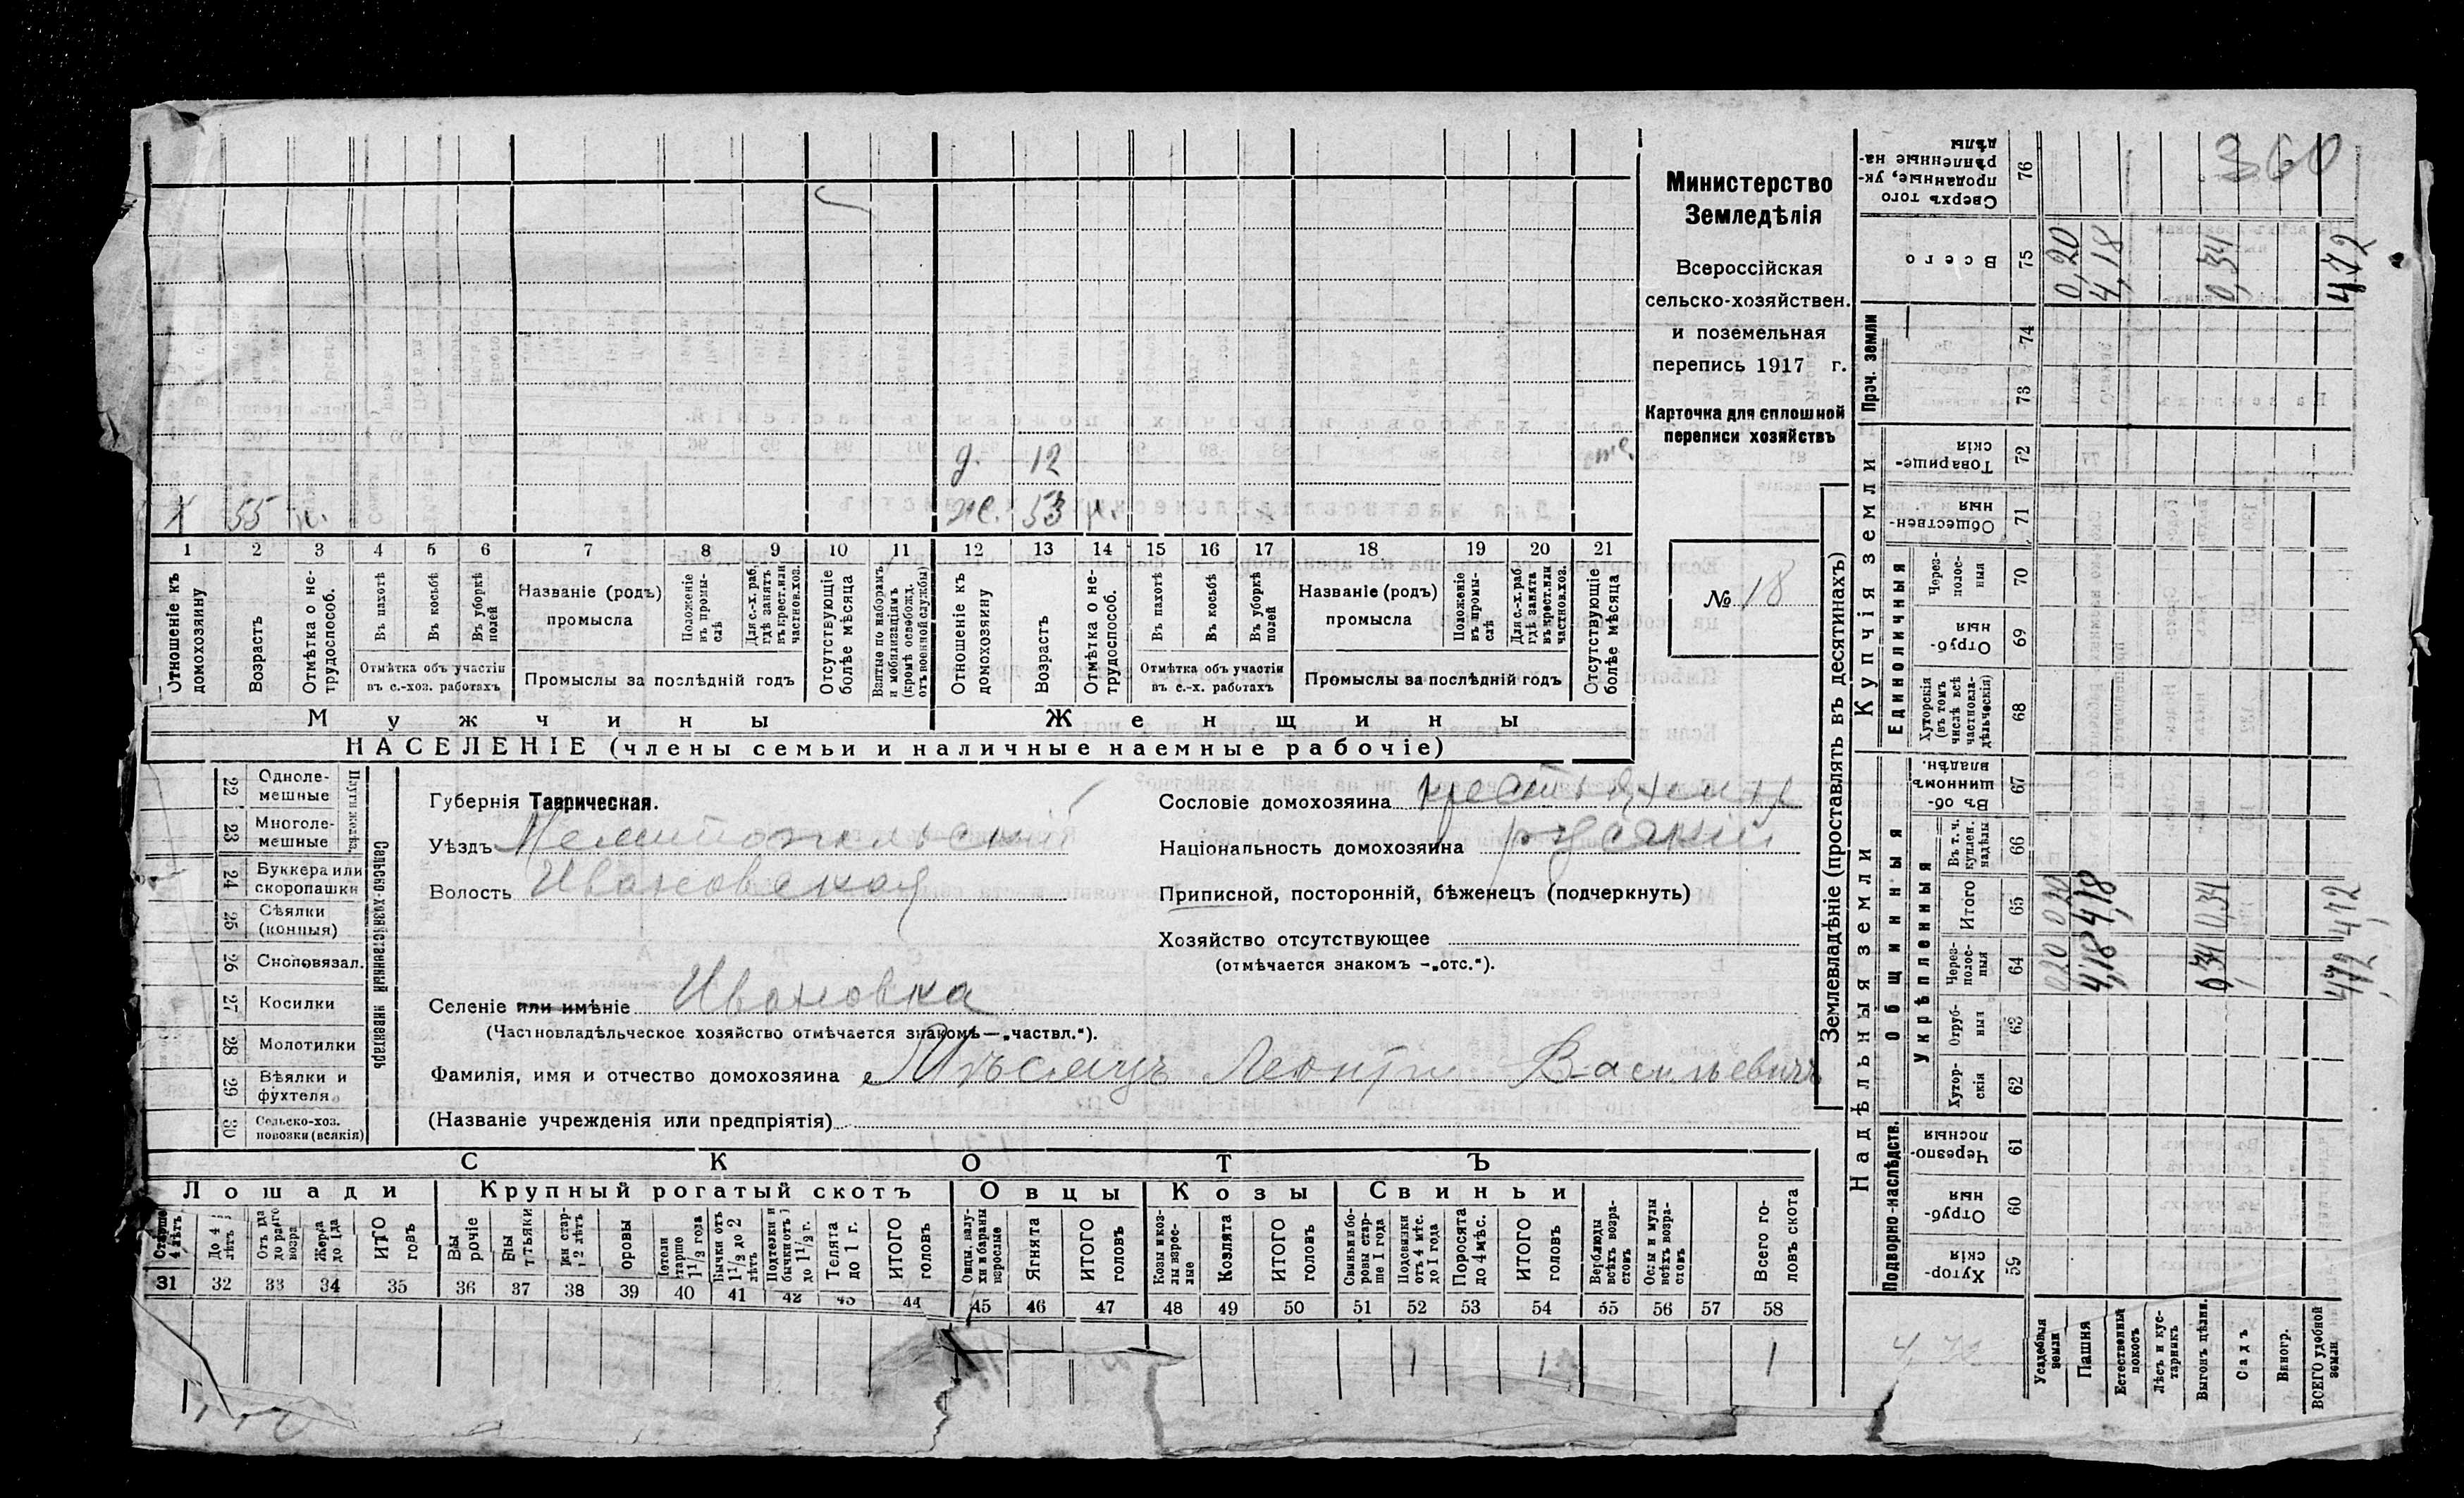 д. 12 те.
х 55 н. ж. 53 н.
1 2 3 4 5 6 7 8 9 10 11 12 13 14 15 16 17 18 19 20 21
Отношеніе къ домохозяину
Возрастъ
Отмѣтка о не-трудоспособ.
Въ пахотѣ
Въ косьбѣ
Въ уборкѣ полей
Отмѣтка объ участіи
въ с.-хоз. работахъ
Названіе (родъ)
промысла
Положеніе въ промы-слѣ
Для с.-х. раб. гдѣ занятъ въ крест. или частнов. хоз.
Промыслы за послѣдній годъ
Отсутствующіе болѣе мѣсяца
Взятые по наборамъ и мобилизаціямъ (кромѣ освобожд. отъ военной службы)
Отношеніе къ домохозяину
Возрастъ
Отмѣтка о не-трудоспособ.
Въ пахотѣ
Въ косьбѣ
Въ уборкѣ полей
Отмѣтка объ участіи
въ с.-х. работахъ
Названіе (родъ)
промысла
Положеніе въ промы-слѣ
Для с.-х. раб. гдѣ занята въ крест. или частнов. хоз.
Промыслы за послѣдній годъ
Отсутствующіе болѣе мѣсяца
Мужчины Женщины
НАСЕЛЕНІЕ (члены семьи и наличные наемные рабочіе)
Министерство
Земледѣлія
Всероссійская
сельско-хозяйствен.
и поземельная
перепись 1917 г.
Карточка для сплошной
переписи хозяйствъ
№ 18
Сельско-хозяйственный инвентарь
Плуги желѣз.
22 Одноле-мешные
23 Многоле-мешные
24 Буккера или скоропашки
25 Сѣялки (конныя)
26 Сноповязал.
27 Косилки
28 Молотилки
29 Вѣялки и фухтеля
30 Сельско-хоз. повозки (всякія)
Губернія Таврическая.
Уѣздъ Мелитопольскій
Волость Ивановская
Сословіе домохозяина крестьянинъ
Національность домохозяина русскій
Приписной, посторонній, бѣженец (подчеркнуть)
Хозяйство отсутствующее
(отмѣчается знакомъ —„отс.“).
Селеніе или имѣніе Ивановка
(Частновладѣльческое хозяйство отмѣчается знакомъ—„частвл.“).
Фамилія, имя и отчество домохозяина Мѣсяцъ Леонтій Васильевичъ
(Названіе учрежденія или предпріятія)
СКОТЪ
Лошади Крупный рогатый скотъ Овцы Козы Свиньи
Старше 4 лѣтъ
До 4 лѣтъ
Жереб. до 1 года
ИТОГО головъ
Коровы
Бычки отъ 1½ до 2 лѣтъ
Телята до 1 г.
ИТОГО головъ
Овцы, валу-хи и бараны взрослые
Ягнята
ИТОГО головъ
Козы и коз-лы взрос-лые
Козлята
ИТОГО головъ
Свиньи и бо-ровы стар-ше 1 года
Подсвинки отъ 4 мѣс. до 1 года
Поросята до 4 мѣс.
ИТОГО головъ
Верблюды всѣхъ возра-стовъ
Ослы и мулы всѣхъ возра-стовъ
Всего го-ловъ скота
31 32 33 34 35 36 37 38 39 40 41 42 43 44 45 46 47 48 49 50 51 52 53 54 55 56 57 58
1 1 1
Землевладѣніе (проставлять въ десятинахъ)
Надѣльныя земли
Купчія земли
Проч. земли
Подворно-наслѣдств.
Общинныя
Укрѣпленныя
Единоличныя
Сверхъ того проданные, ук-рѣпленные на-дѣлы 76
Всего 75 0,20 4,18 0,34 4,72
74
73
Товарище-скія 72
Обществен-ныя 71
Через-полос-ныя 70
Отруб-ныя 69
Хуторскія (въ томъ числѣ всѣ частновла-дѣльческія) 68
Въ об-щинномъ владѣн. 67
Въ т. ч. куплен. надѣлы 66
Итого 65 0,20 4,18 0,34 4,72
Через-полос-ныя 64 0,20 4,18 0,34 4,72
Отруб-ныя 63
Хутор-скія 62
Черезпо-лосныя 61
Отруб-ныя 60
Хутор-скія 59
Усадебныя земли
Пашня
Естественный покосъ
Лѣсъ и кус-тарникъ
Выгонъ цѣлин.
Садъ
Виногр.
ВСЕГО удобной земли
360
4,72